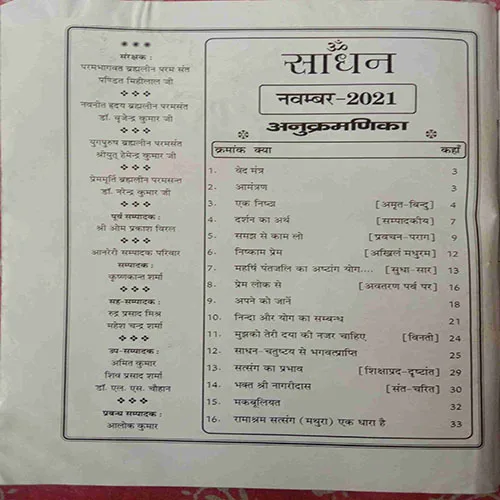 संरक्षक :
परमभागवत ब्रह्मलीन परम संत
पण्डित मिहीलाल जी
नवनीत हृदय ब्रह्मलीन परमसंत
डॉ. बृजेन्द्र कुमार जी
युगपुरुष ब्रह्मलीन परमसंत
श्रीयुत् हेमेन्द्र कुमार जी
प्रेममूर्ति ब्रह्मलीन परमसन्त
डॉ. नरेन्द्र कुमार जी
पूर्व सम्पादक :
श्री ओम प्रकाश विरल
आनरेरी सम्पादक परिवार
सम्पादक :
कृष्णकान्त शर्मा
सह-सम्पादक :
रुद्र प्रसाद मिश्र
महेश चन्द्र शर्मा
उप-सम्पादक :
अमित कुमार
शिव प्रसाद शर्मा
डॉ. एल. एस. चौहान
प्रबन्ध सम्पादक :
आलोक कुमार
ॐ
साधन
नवम्बर-2021
अनुक्रमणिका
क्रमांक क्या कहाँ
1. वेद मंत्र 3
2. आमंत्रण 3
3. एक निष्ठा [अमृत-बिन्दु] 4
4. दर्शन का अर्थ [सम्पादकीय] 7
5. समझ से काम लो [प्रवचन-पराग] 9
6. निष्काम प्रेम [अखिलं मधुरम] 12
7. महर्षि पंतजलि का अष्टांग योग.... [सुधा-सार] 13
8. प्रेम लोक से [अवतरण पर्व पर] 16
9. अपने को जानें 18
10. निन्दा और योग का सम्बन्ध 21
11. मुझको तेरी दया की नजर चाहिए [विनती] 24
12. साधन-चतुष्टय से भगवत्प्राप्ति 25
13. सत्संग का प्रभाव [शिक्षाप्रद-दृष्टांत] 29
14. भक्त श्री नागरीदास [संत-चरित] 30
15. मकबूलियत 32
16. रामाश्रम सत्संग (मथुरा) एक धारा है 33